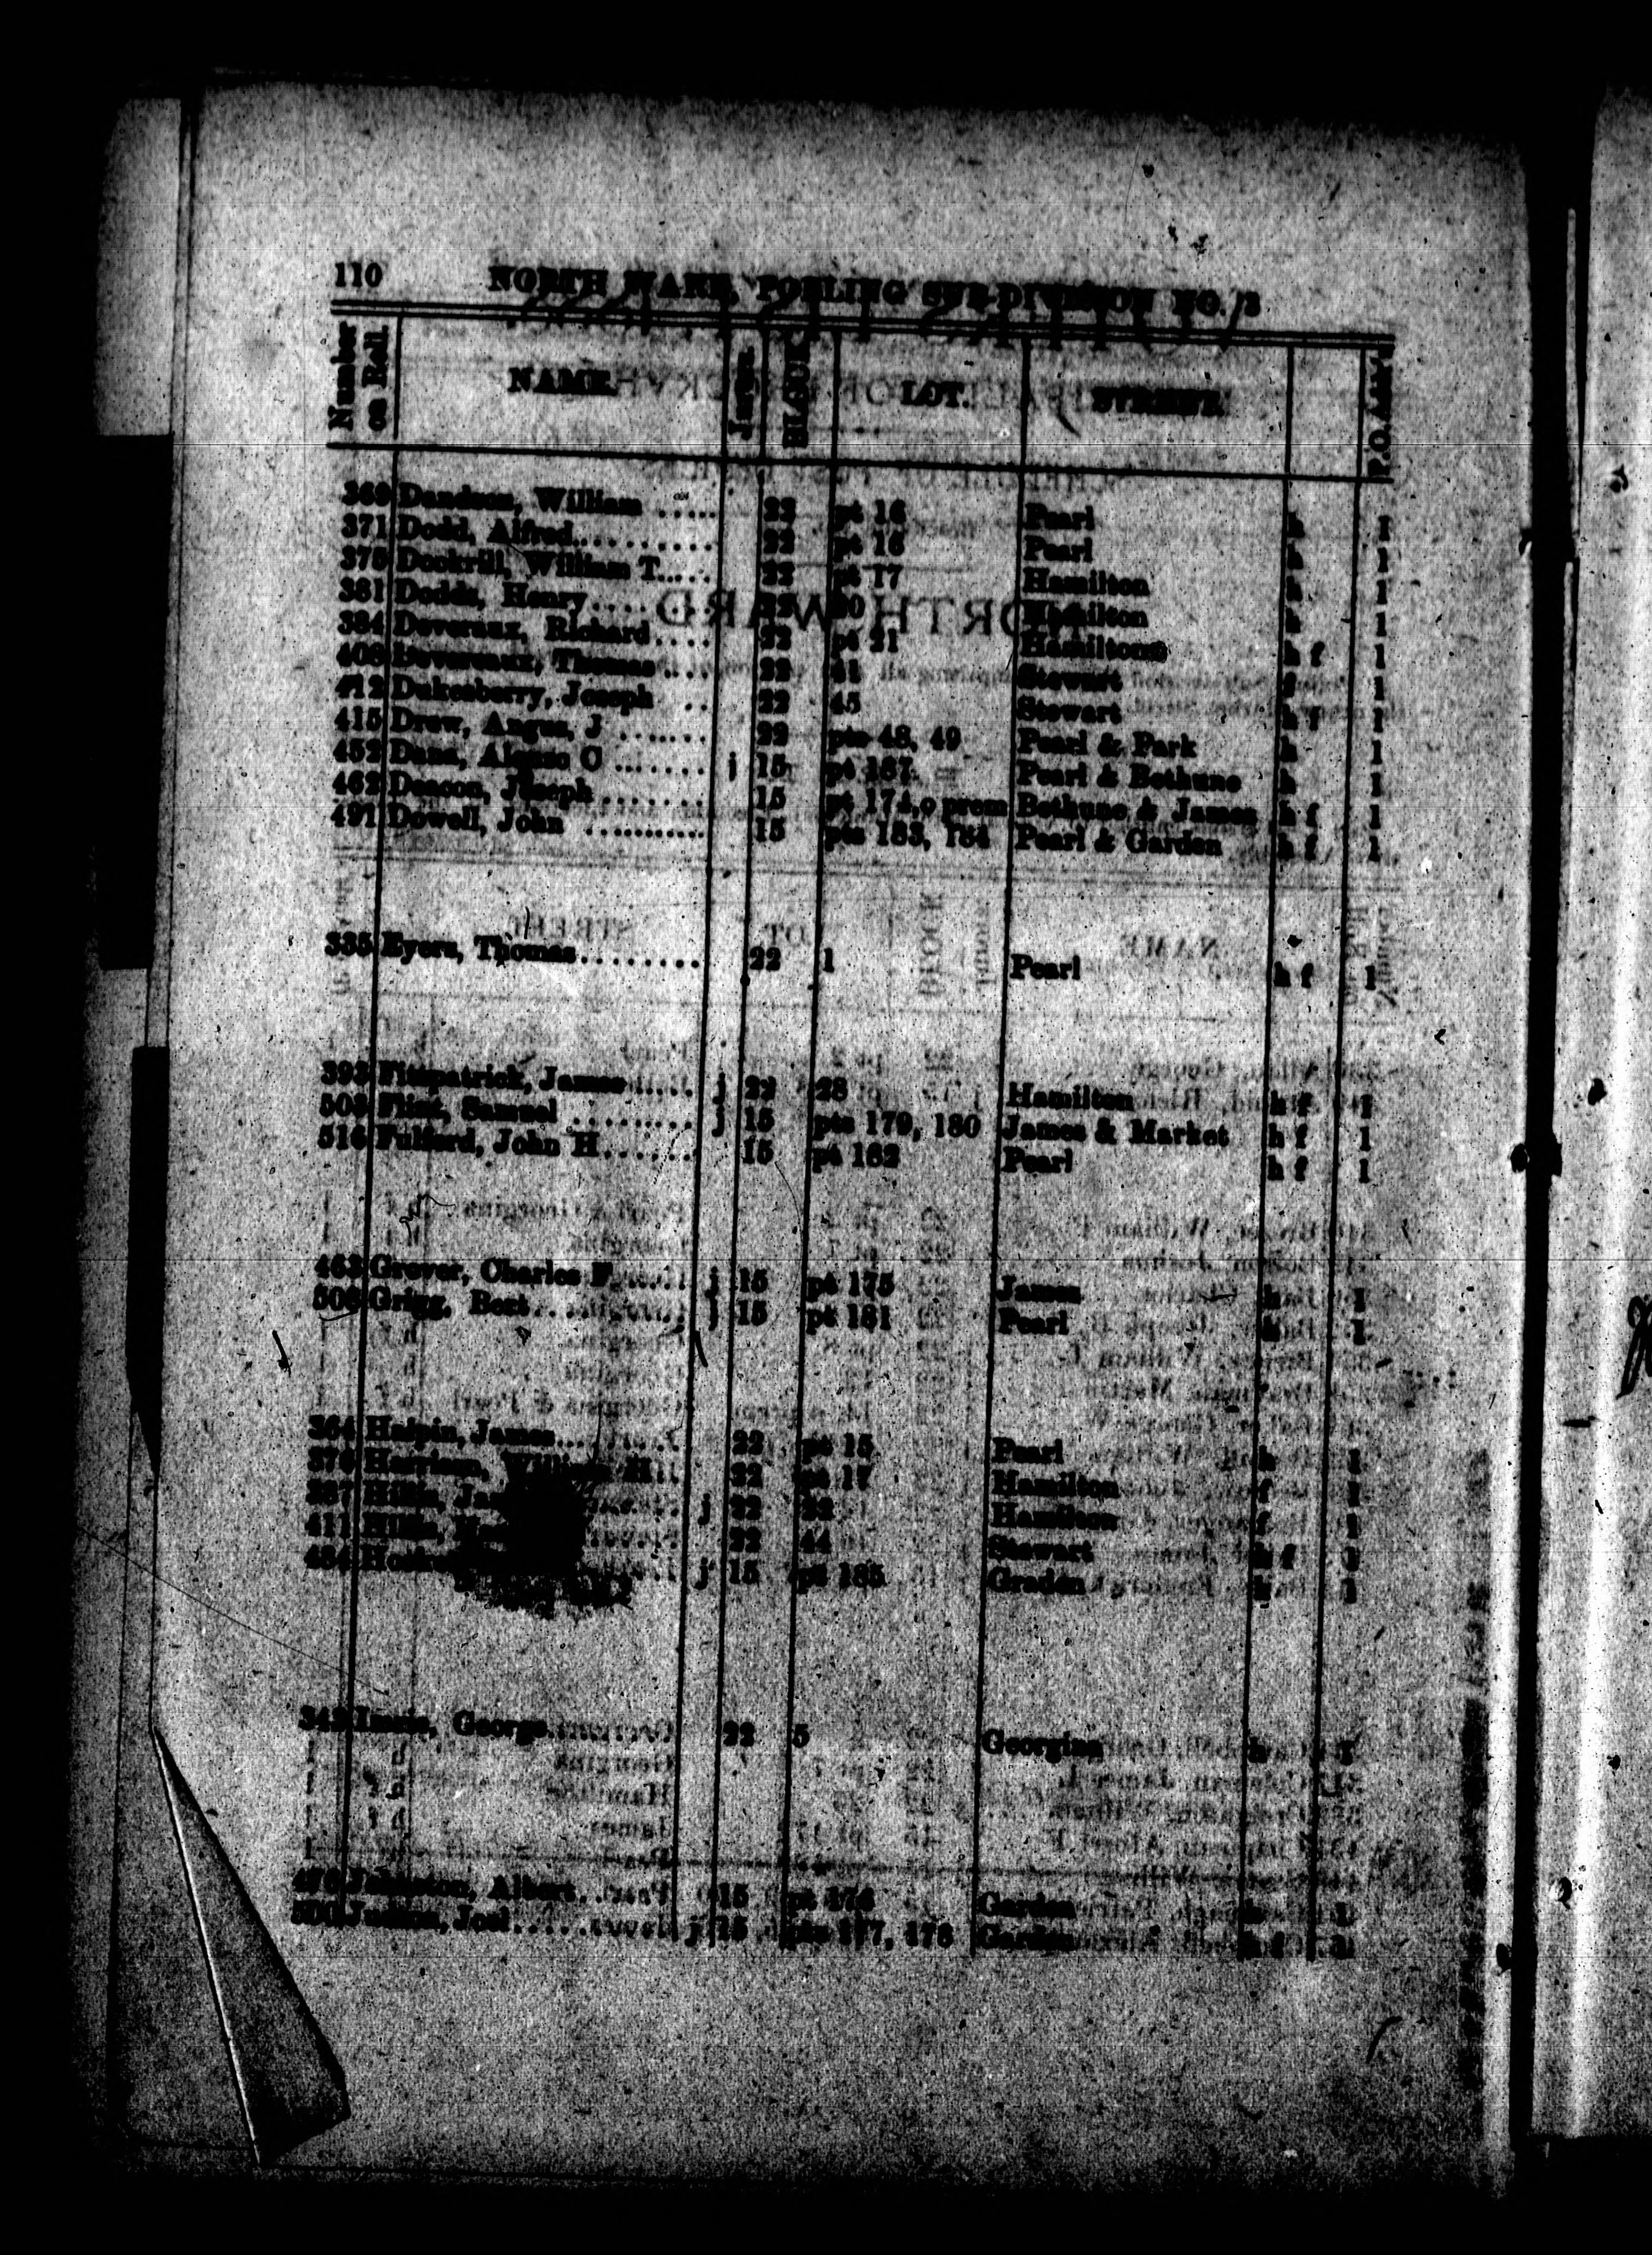 110 NORTH WARD, POLLING SUB-DIVISION NO. 3
Number on Roll NAME. Juror. BLOCK LOT. STREET. P.O. Add's
369 William ..... 22 pt 16 Pearl h 1
371 Dodd, Alfred.......... 22 pt 16 Pearl h 1
375 Dockrill, William T..... 22 pt 17 Hamilton h 1
381 Dodds, Henry.... 22 20 Hamilton h 1
384 Deveraux, Richard.... 22 pt 21 Hamilton h f 1
408 Devereaux, Thomas .... 22 41 Stewart f 1
412 Dukesberry, Joseph .. 22 45 Stewart h f 1
415 Drew, Angus, J ....... 22 pts 48, 49 Pearl & Park h 1
452 Dana, Alonzo C ....... j 15 pt 187 Pearl & Bethune h 1
462 Deacon, Joseph ........ 15 pt 174,o prem Bethune & James h f 1
491 Dowell, John ........... 15 pts 183, 184 Pearl & Garden h f 1
335 Eyers, Thomas........ 22 1 Pearl h f 1
393 Fitzpatrick, James..... j 22 28 Hamilton h f 1
503 Flint, Samuel ......... j 15 pts 179, 180 James & Market h f 1
516 Fulford, John H....... 15 pt 182 Pearl h f 1
463 Grover, Charles F...... j 15 pt 175 James h 1
506 Grigg, Bert........ j 15 pt 181 Pearl h 1
364 Halpin, James.......... 22 pt 15 Pearl h 1
376 Harrison, William H.. 22 pt 17 Hamilton f 1
387 j 22 Hamilton f 1
411 22 44 Stewart h f 1
484 j 15 pt 185 Graden h 1
342 George 22 5 Georgina h 1
476 Johnston, Albert 15 pt 176 Garden h 1
500 Judson, Joel j 15 pts 177, 178 Garden h f 1